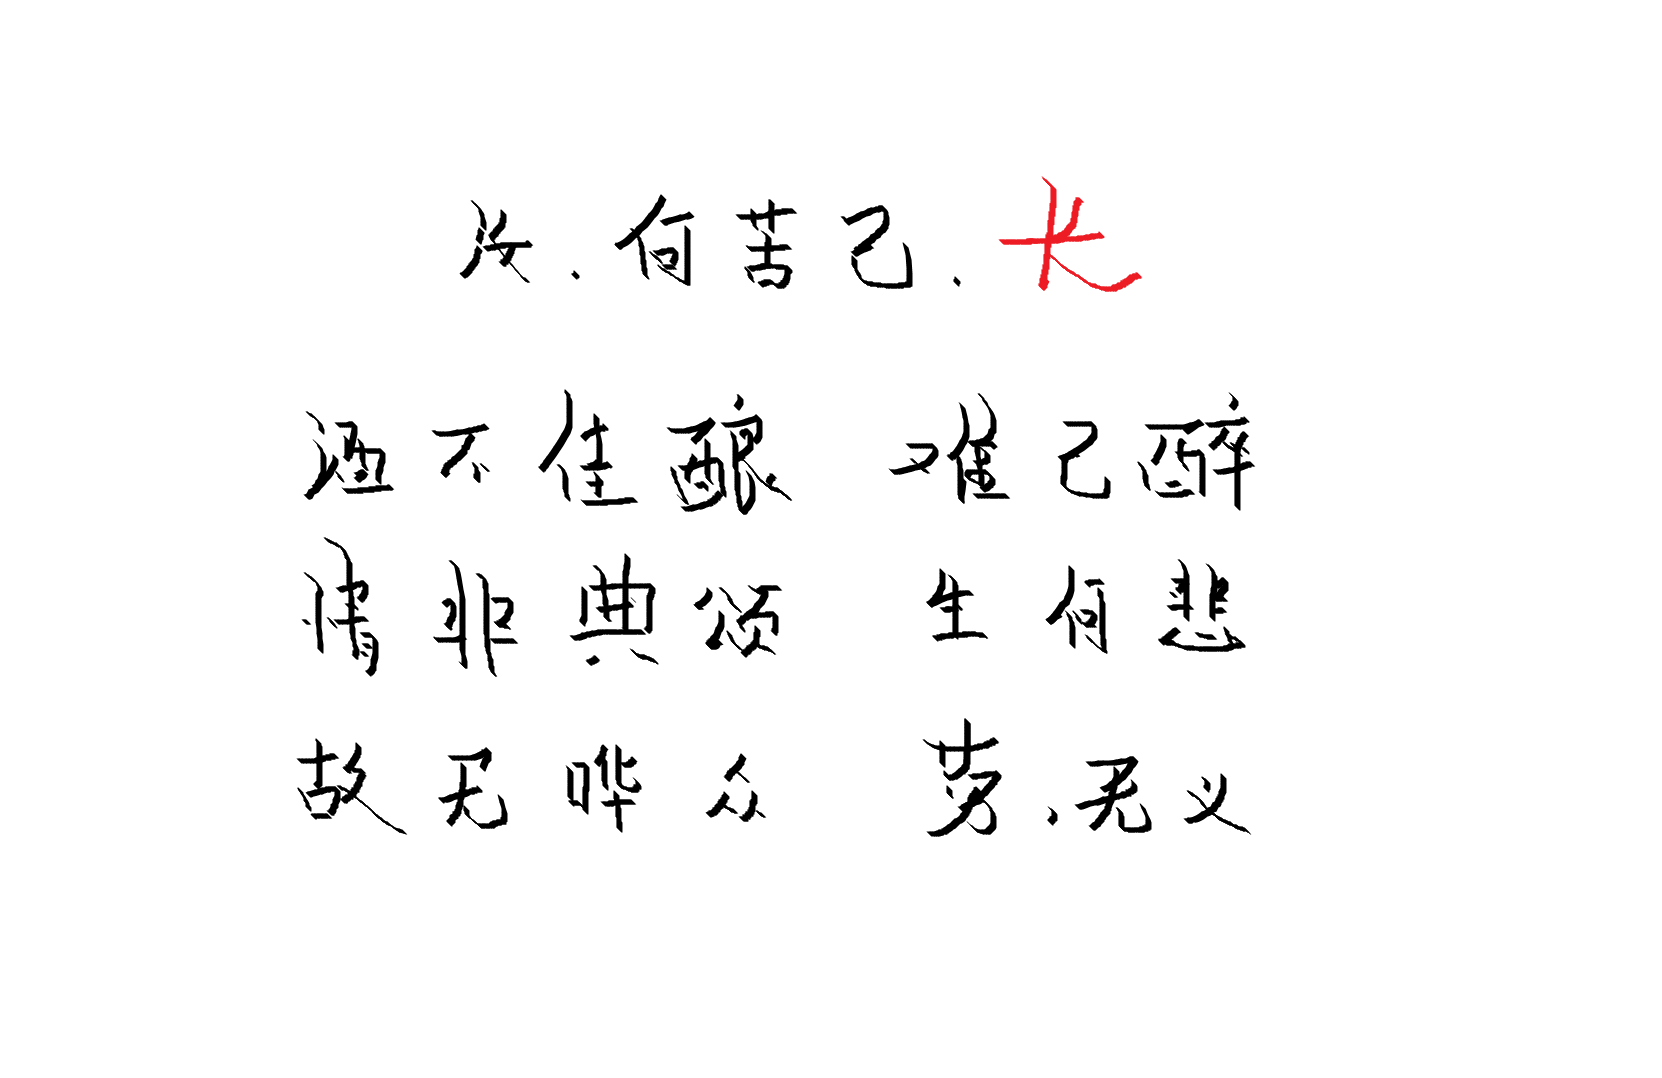 汝.何苦己.长
酒不佳酿 难己醉
情非典颂 生何悲
故无哗众 劳.无义